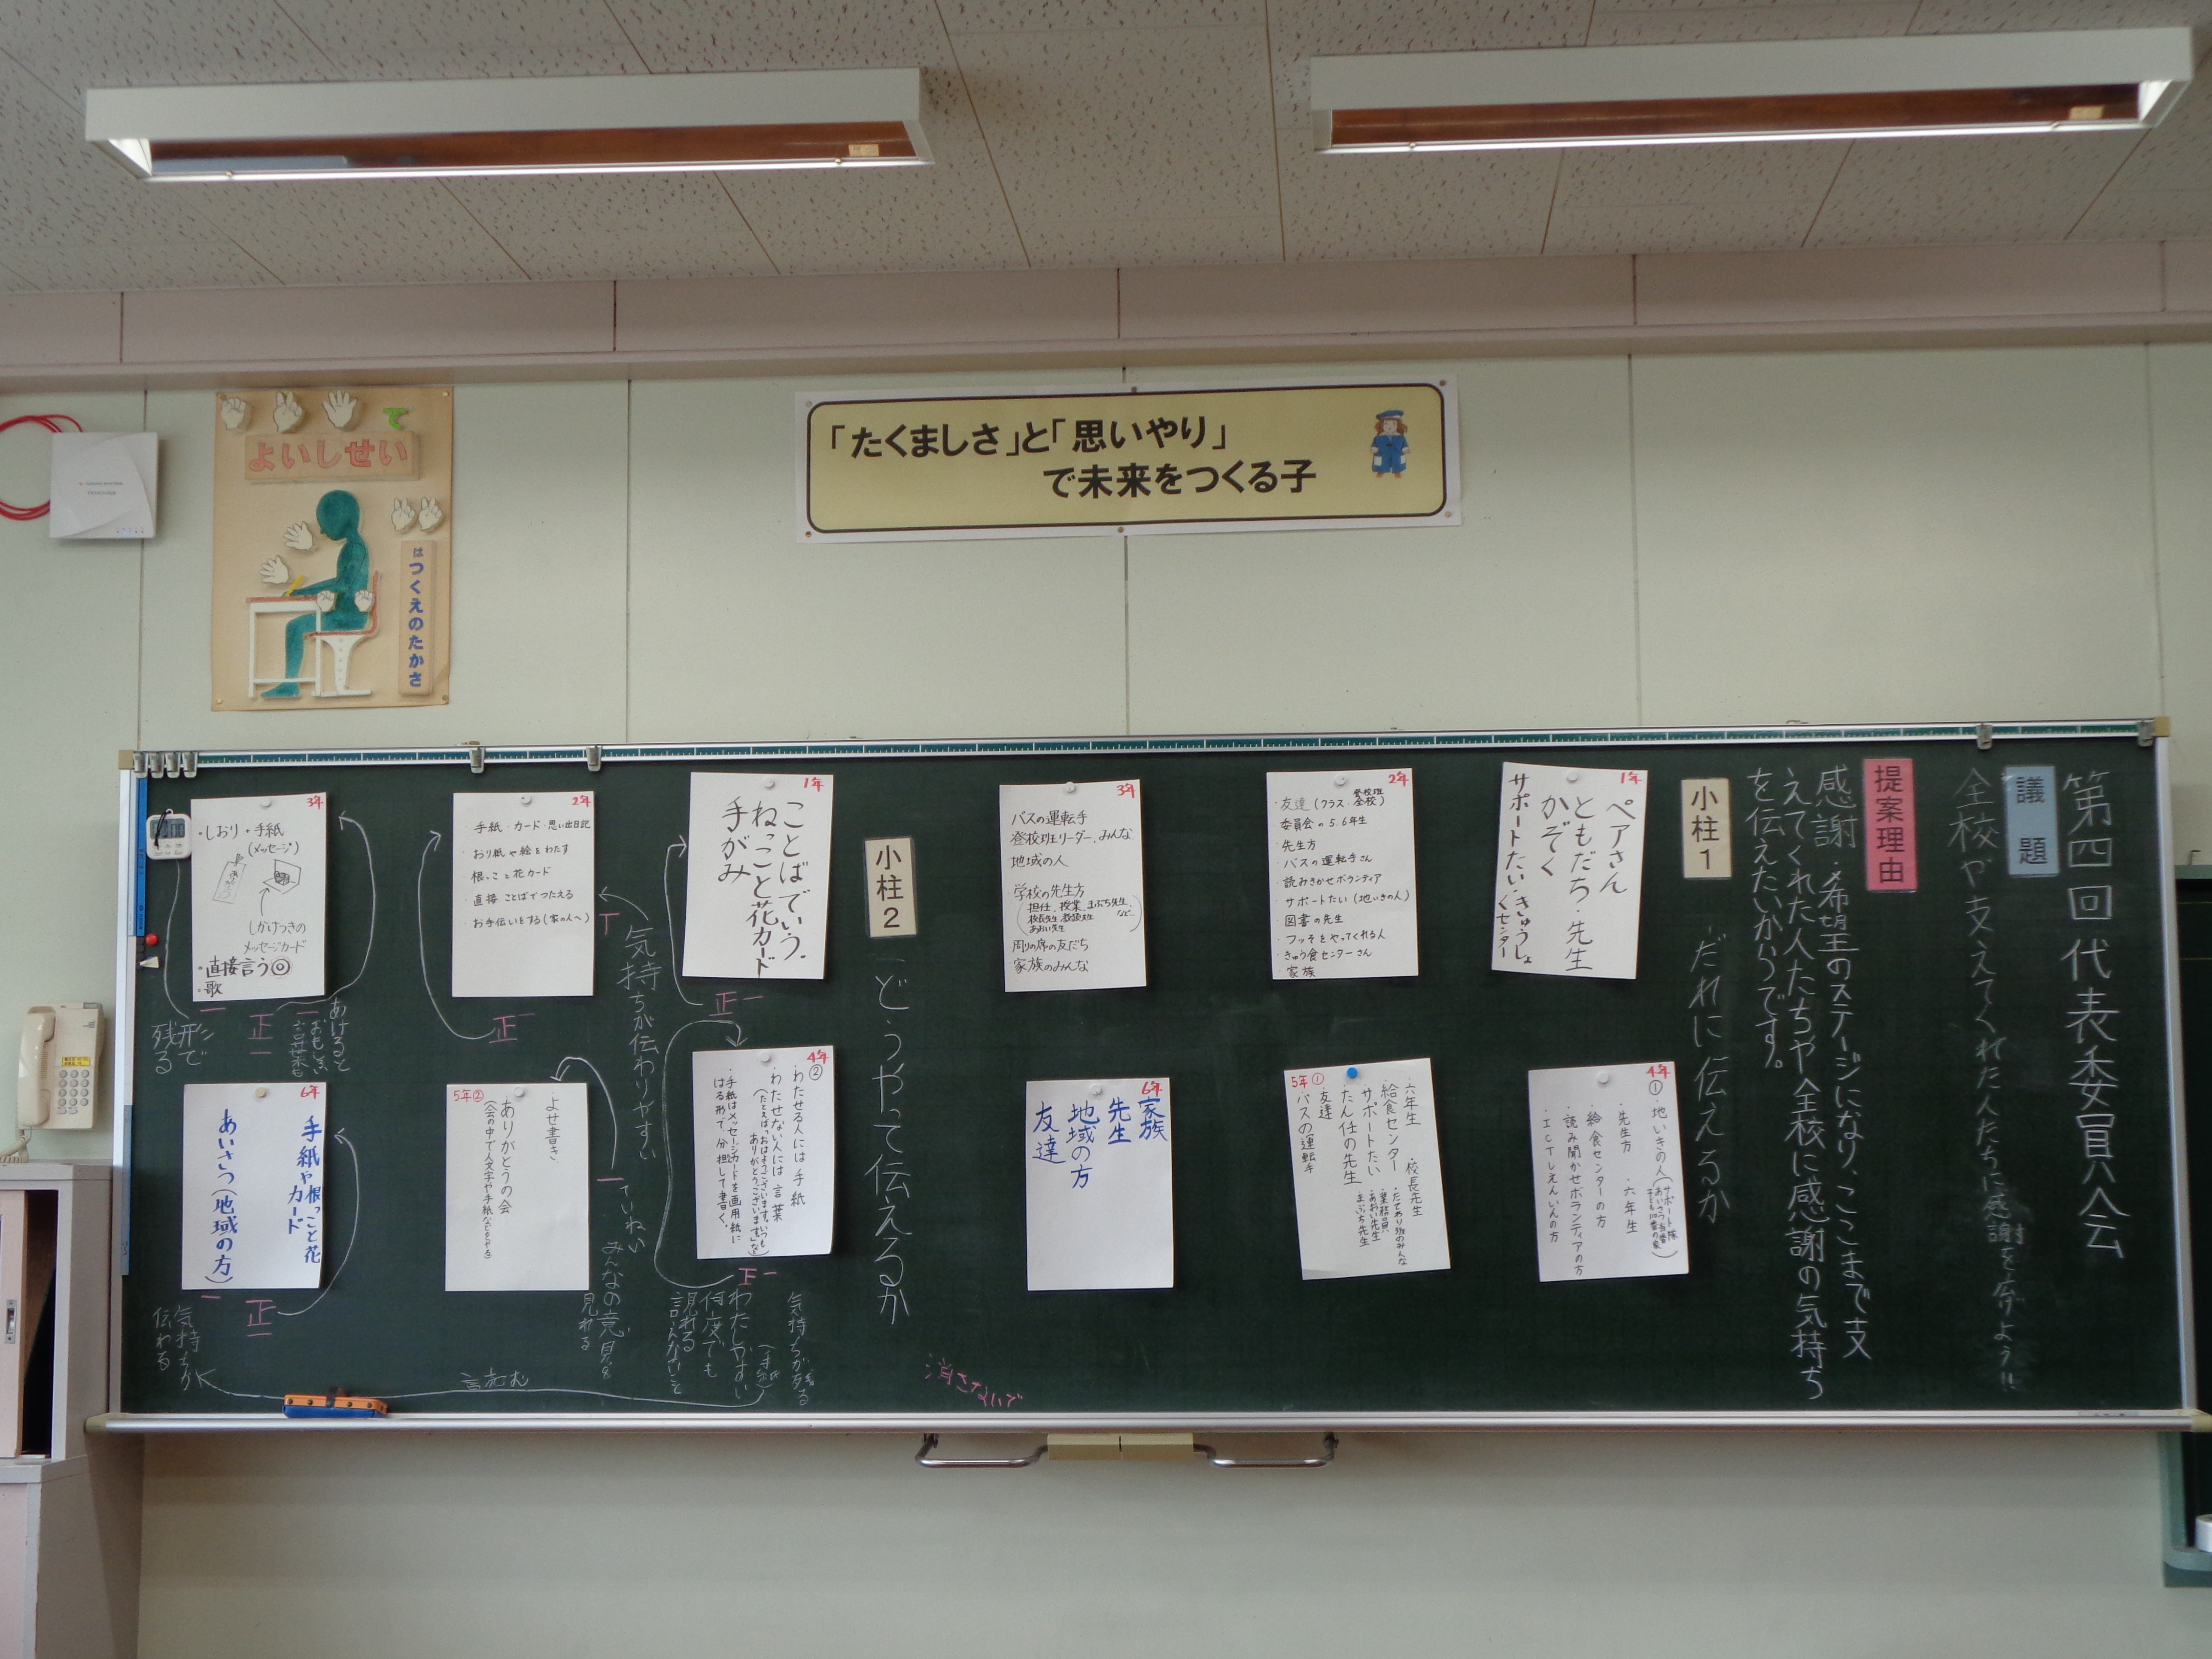 「たくましさ」と「思いやり」
で未来をつくる子
て
よいしせい
はつくえのたかさ
第四回代表委員会
議題
全校や支えてくれた人たちに感謝を広げよう!!
提案理由
感謝・希望のステージになり、ここまで支
えてくれた人たちや全校に感謝の気持ち
を伝えたいからです。
小柱1
だれに伝えるか
1年
ペアさん
ともだち・先生
かぞく
サポートたい・きゅうしょ
くセンター
2年
・友達(クラス・登校班・全校)
・委員会の5.6年生
・先生方
・バスの運転手さん
・読みきかせボランティア
・サポートたい(地いきの人)
・図書の先生
・フッそをやってくれる人
・きゅう食センターさん
・家族
3年
バスの運転手
登校班リーダー、みんな
地域の人
学校の先生方
(担任、授業、まぶち先生、
校長先生、教頭先生
あおい先生 など…)
周りの席の友だち
家族のみんな
4年①
・地いきの人(サポート隊
あいさつ当番
子ども110番の家)
・先生方 ・六年生
・給食センターの方
・読み聞かせボランティアの方
・ICTしえんいんの方
5年①
・六年生 ・校長先生
給食センター ・たてわり班のみんな
サポートたい ・業務員
たん任の先生 ・あおい先生
・友達 まぶち先生
・バスの運転手
6年
家族
先生
地域の方
友達
小柱2
どうやって伝えるか
1年
ことばでいう。
ねっこと花カード
手がみ
正一
2年
・手紙・カード・思い出日記
・おり紙や絵をわたす
・根っこと花カード
・直接ことばでつたえる
・お手伝いをする(家の人へ)
気持ちが伝わりやすい
3年
・しおり・手紙
(メッセージ)
しかけつきの
メッセージカード
・直接言う◎
・歌
あけると
おもしろい
言葉も
形で
残る
4年②
・わたせる人には手紙
・わたせない人には言葉
(たとえば「おはようございます。いつも
ありがとうございます。」など)
・手紙はメッセージカードを画用紙に
はる形で、分担して書く。
気持ちが残る
(手紙)
わたしやすい
何度でも
見れる
言えないこと
5年②
よせ書き
ありがとうの会
ていねい
みんなの意見を
見れる
6年
手紙や根っこと花
カード
あいさつ(地域の方)
正
気持ちが
伝わる
消さないで